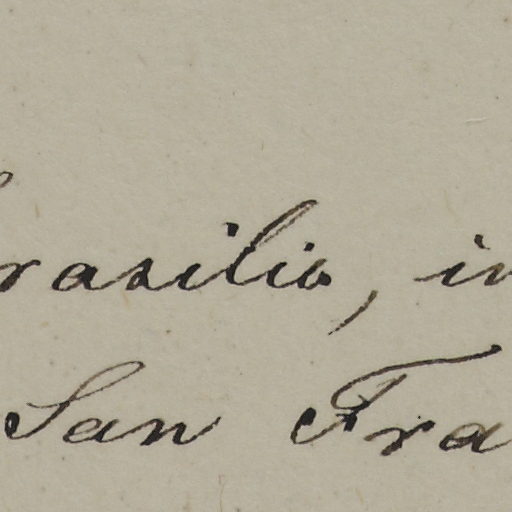 rasilio, in
San Fra